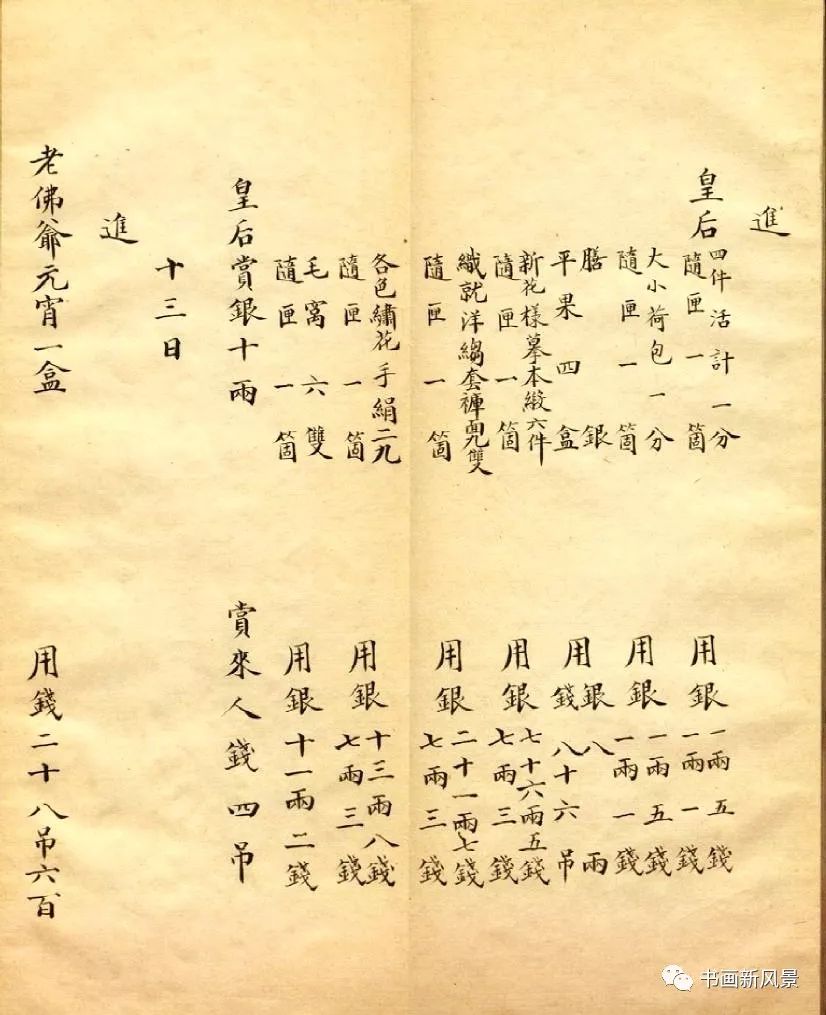 進
皇后
四件活計一分
隨匣一箇
用銀
一兩五錢
一兩一錢
大小荷包一分
隨匣一箇
用銀
一兩五錢
一兩一錢
膳銀
平果四盒
用銀八兩
錢八十六吊
新花樣摹本緞六件
隨匣一箇
用銀
七十六兩五錢
七兩三錢
織就洋縐套褲雙
隨匣一箇
用銀
二十一兩七錢
七兩三錢
各色繡花手絹二九
隨匣一箇
用銀
十三兩八錢
七兩三錢
毛窩六雙
隨匣一箇
用銀十一兩二錢
皇后賞銀十兩
賞來人錢四吊
十三日
進
老佛爺元宵一盒
用錢二十八吊六百
书画新风景